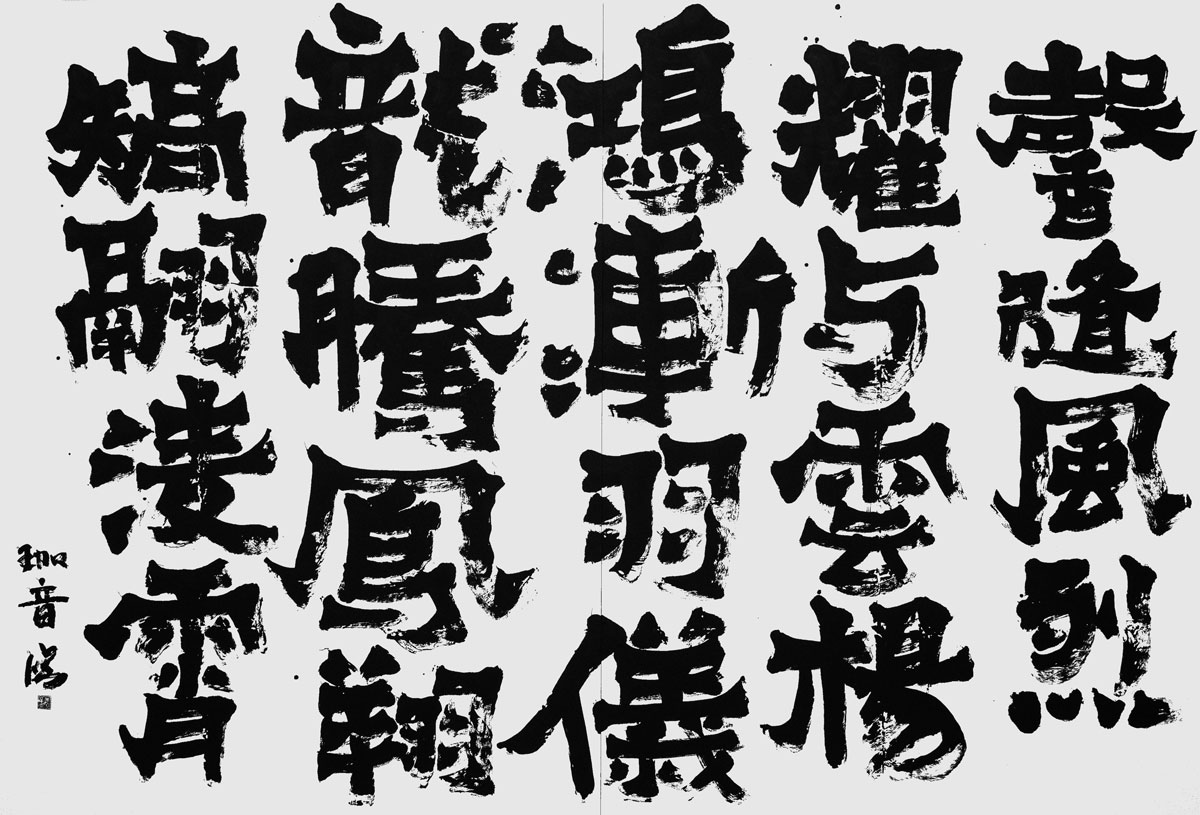 馨随風烈
耀与雲楊
鴻漸羽儀
龍騰鳳翔
矯翮淩霄
珈音臨